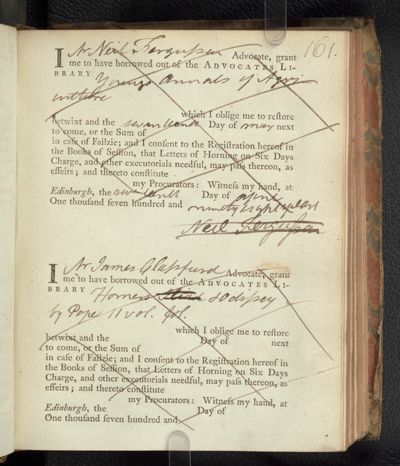 161.
I Mr Neil Fergusson Advocate, grant
me to have borrowed out of the ADVOCATES LI-
BRARY Youngs Annals of Agri
culture
which I oblige me to restore
betwixt and the seventeenth Day of may next
to come, or the Sum of
in case of Failzie; and I consent to the Registration hereof in
the Books of Session, that Letters of Horning on Six Days
Charge, and other executorials needful, may pass thereon, as
effeirs; and thereto constitute
my Procurators: Witness my hand, at
Edinburgh, the seventeenth Day of
One thousand seven hundred and ninety eight years
Neil Fergusson
I Mr James Glassfurd Advocate, grant
me to have borrowed out of the ADVOCATES LI-
BRARY Homers Odissey
by Pope 11 vol. fol.
which I oblige me to restore
betwixt and the Day of next
to come, or the Sum of
in case of Failzie; and I consent to the Registration hereof in
the Books of Session, that Letters of Horning on Six Days
Charge, and other executorials needful, may pass thereon, as
effeirs; and thereto constitute
my Procurators: Witness my hand, at
Edinburgh, the Day of
One thousand seven hundred and